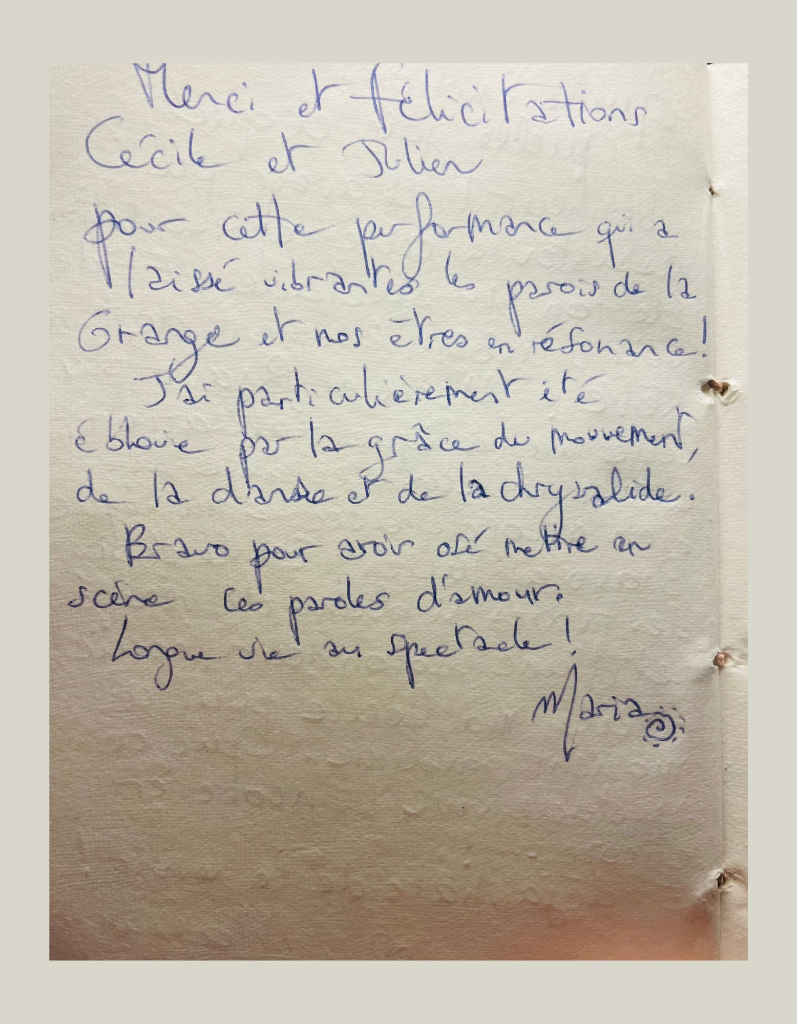 Merci et félicitations
Cécile et Julien
pour cette performance qui a
laissé vibrantes les parois de la
Grange et nos êtres en résonance!
J'ai particulièrement été
éblouie par la grâce du mouvement,
de la danse et de la chrysalide.
Bravo pour avoir osé mettre en
scène ces paroles d'amour.
Longue vie au spectacle!
Maria